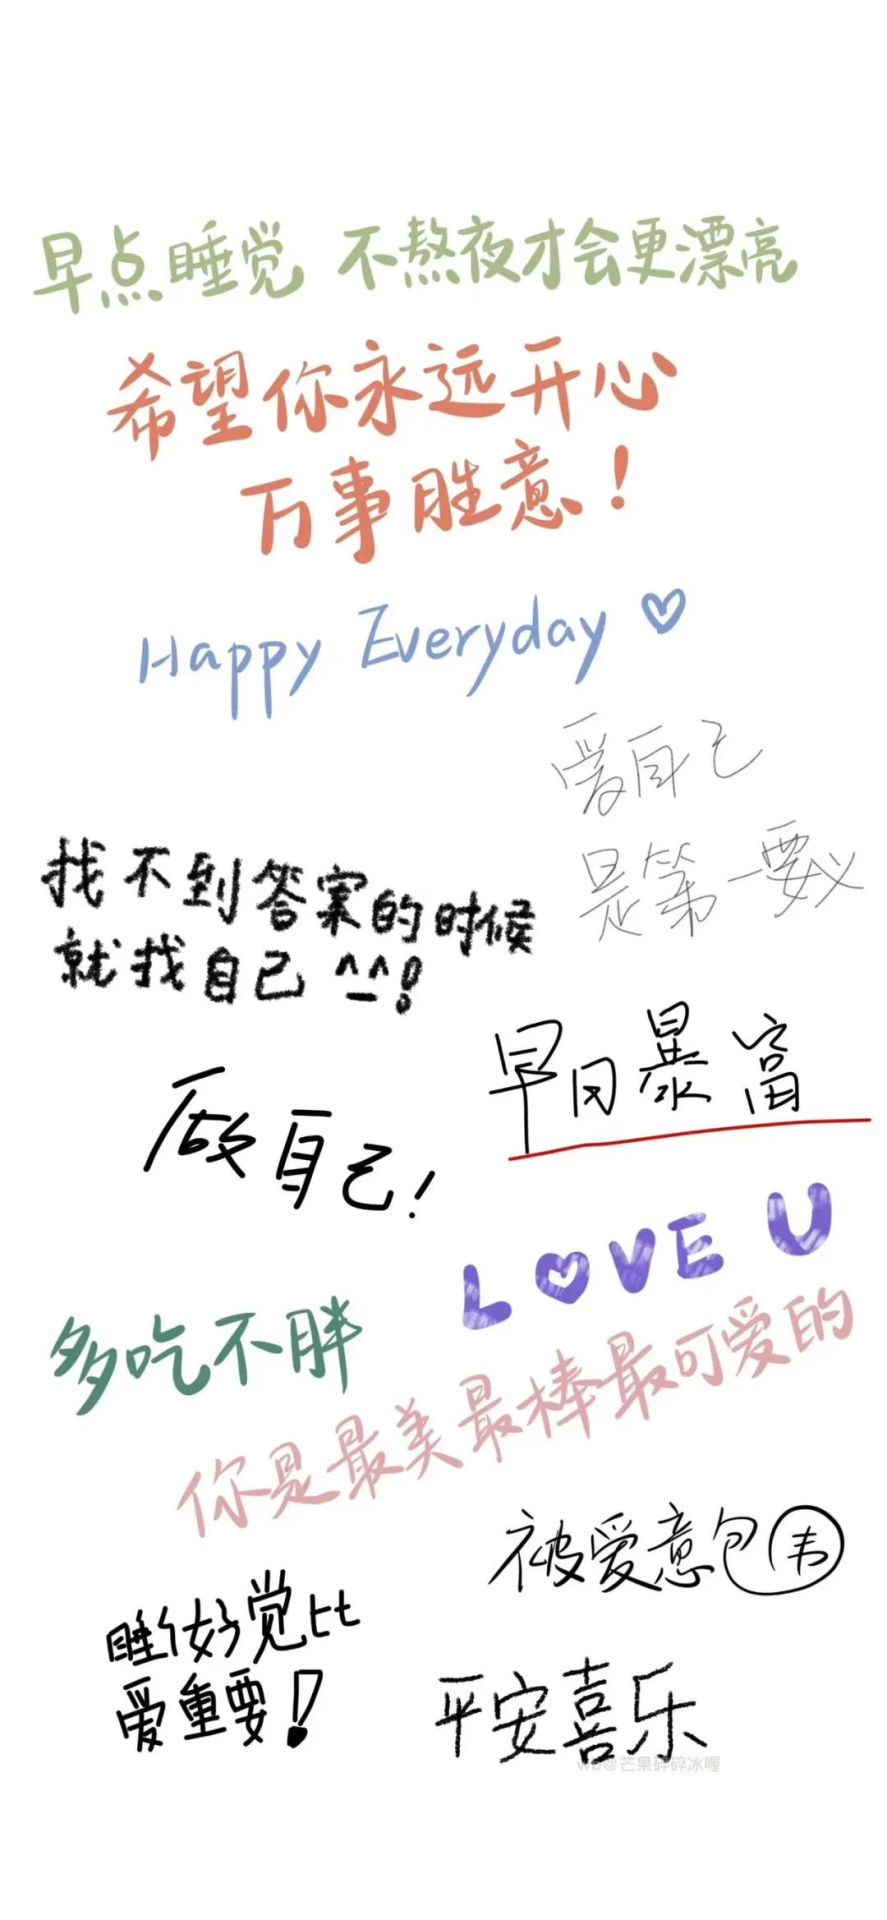 早点睡觉 不熬夜才会更漂亮
希望你永远开心
万事胜意！
Happy Everyday ♡
爱自己
是第一要义
找不到答案的时候
就找自己 ^_^!
早日暴富
做自己！
LOVE U
多吃不胖
你是最美最棒最可爱的
被爱意包围
睡个好觉比
爱重要！
平安喜乐
wb@芒果碎碎冰喔